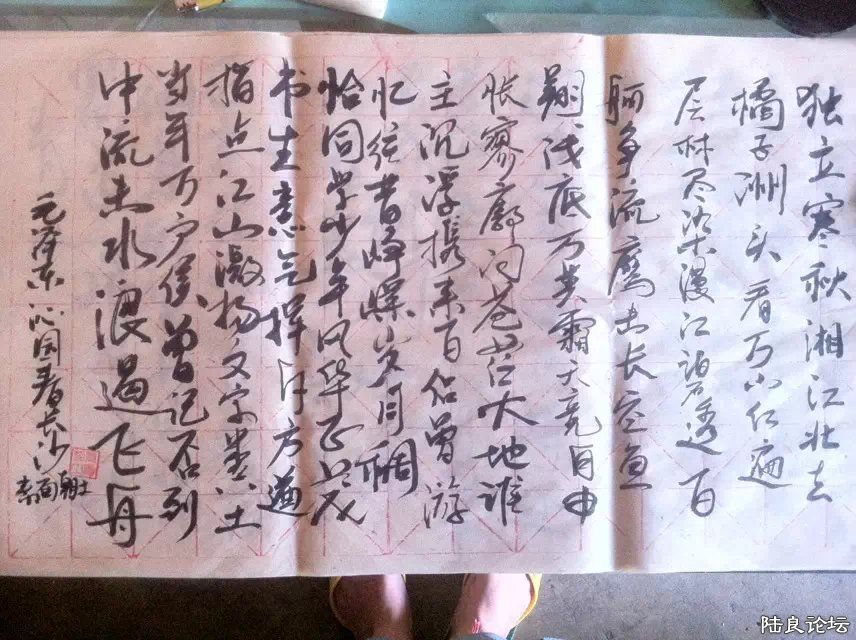 独立寒秋湘江北去
橘子洲头看万山红遍
层林尽染漫江碧透百
舸争流鹰击长空鱼
翔浅底万类霜天竞自由
怅寥廓问苍茫大地谁
主沉浮携来百侣曾游
忆往昔峥嵘岁月稠
恰同学少年风华正茂
书生意气挥斥方遒
指点江山激扬文字粪土
当年万户侯曾记否到
中流击水浪遏飞舟
毛泽东沁园春长沙
陆良论坛